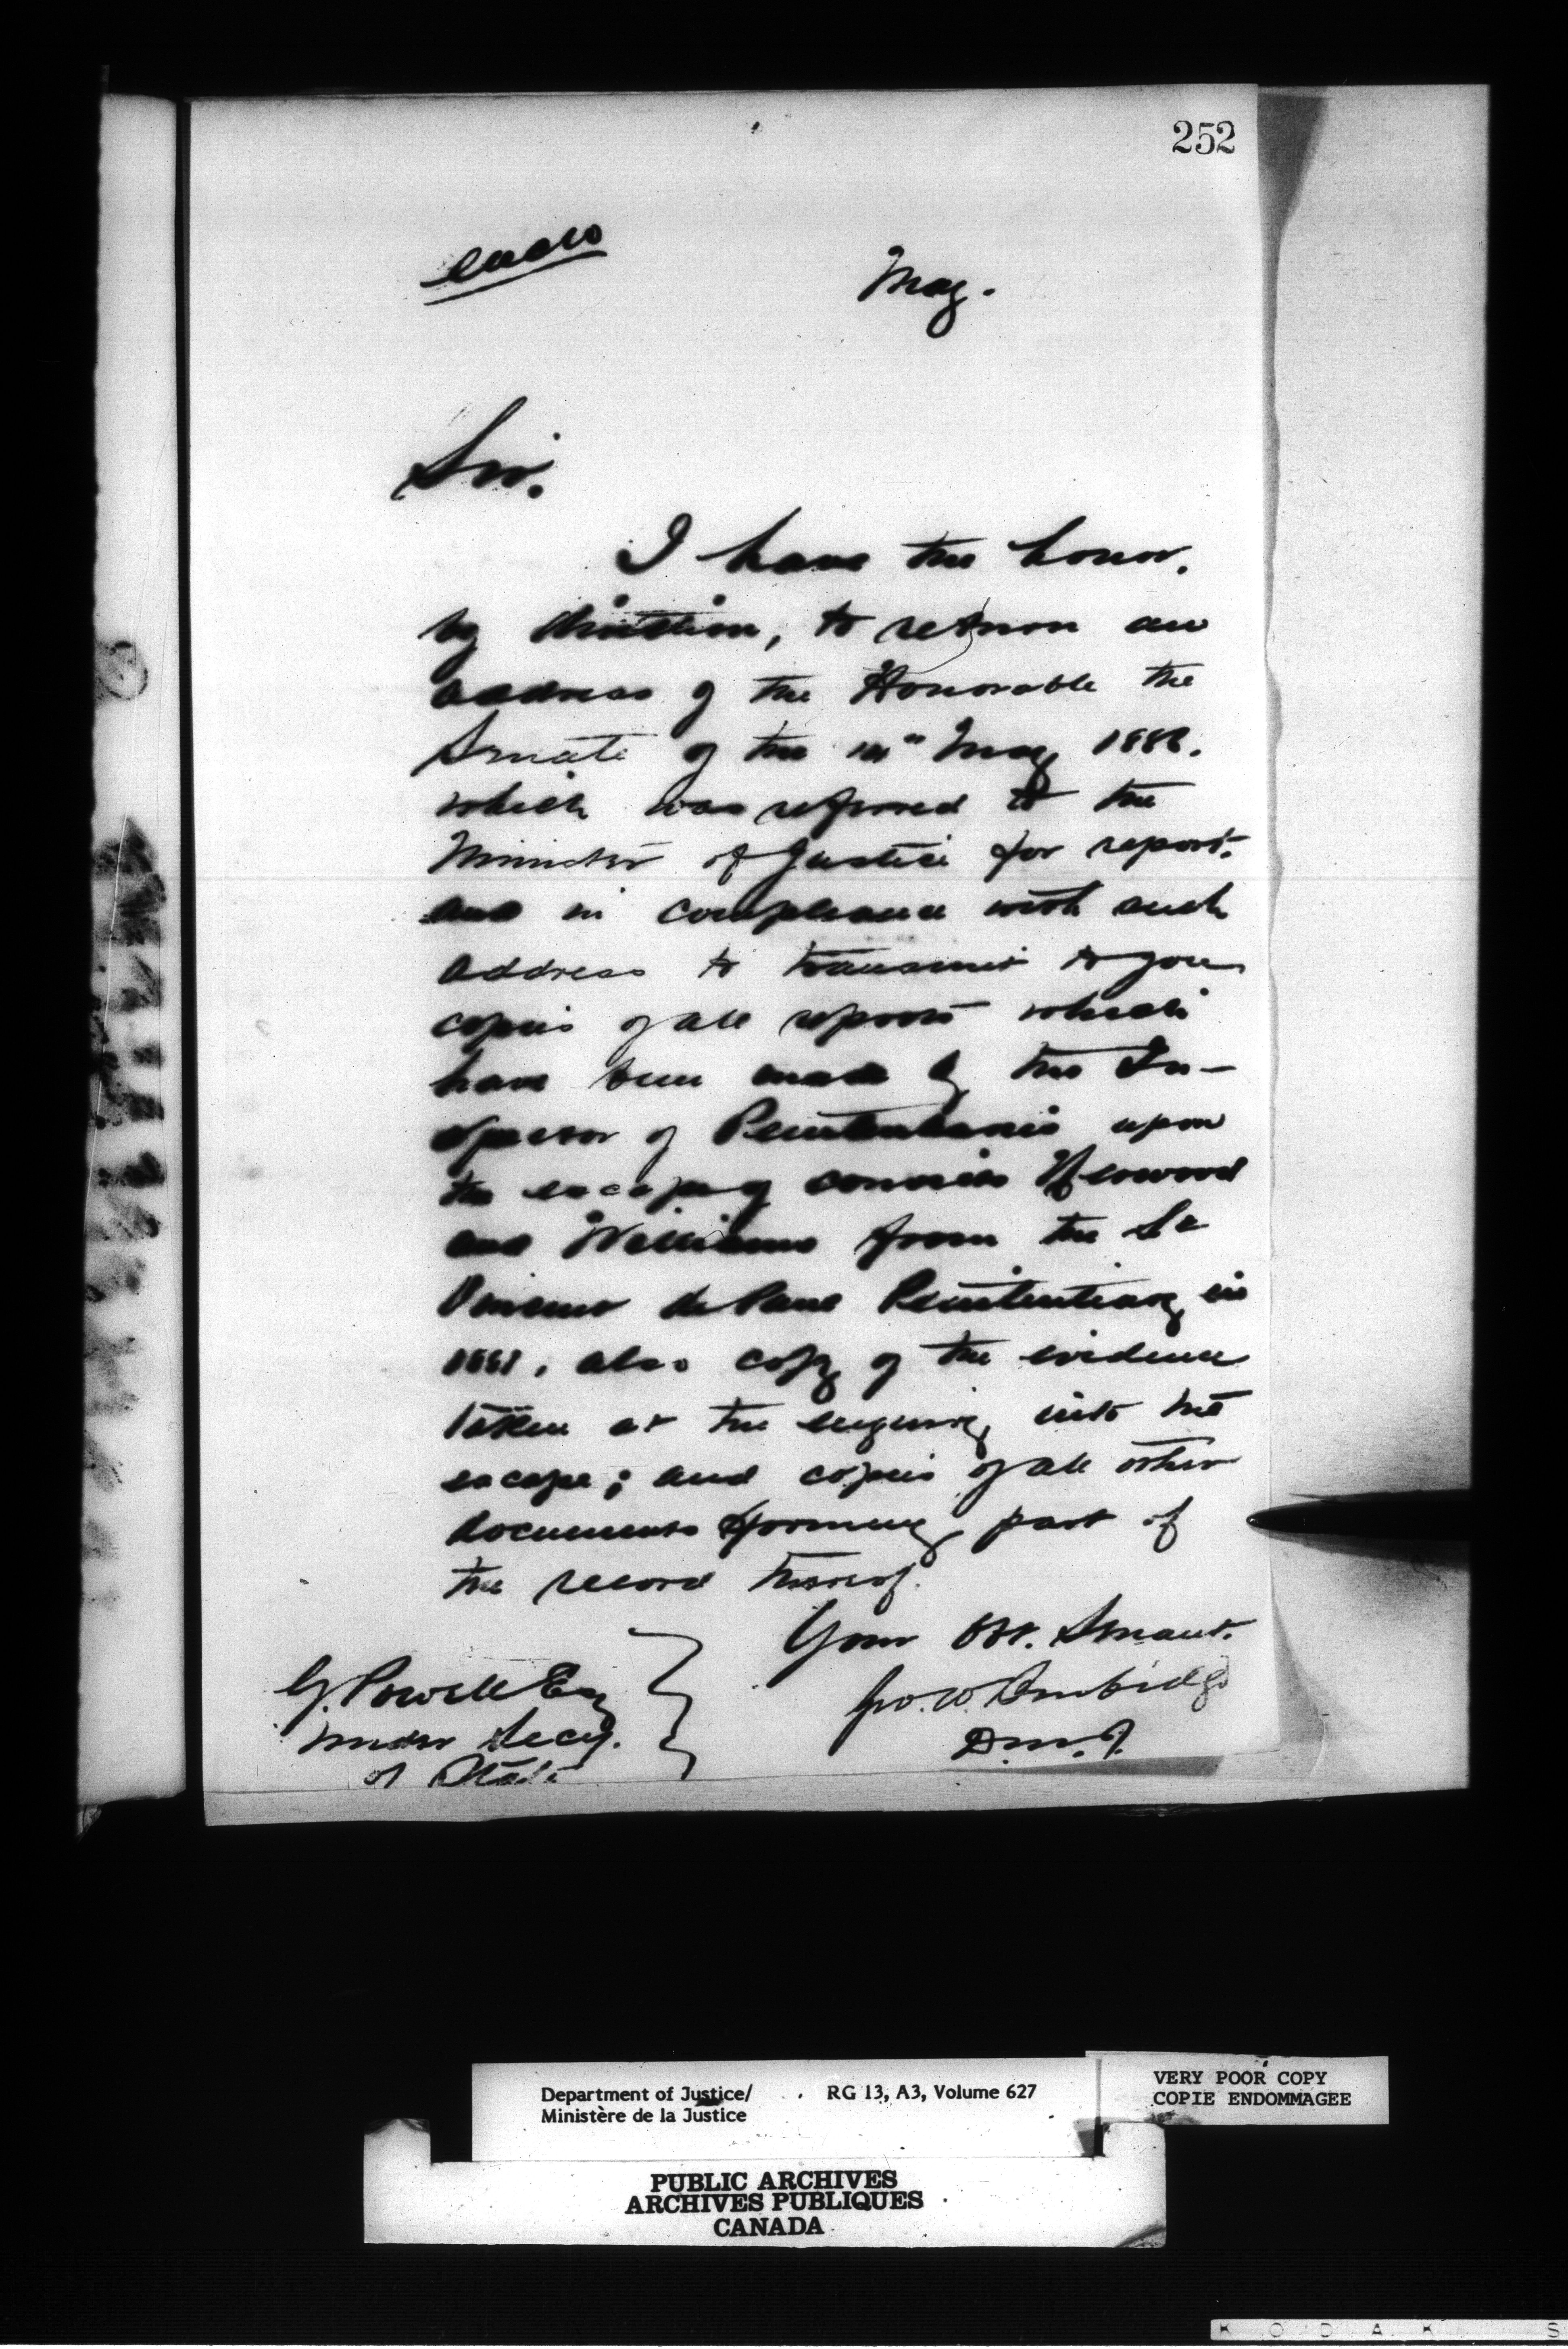 252
encls
May.
Sir.
I have the honor,
by direction, to return an
address of the Honorable the
Senate of the May 1882.
which was referred to the
Minister of Justice for report.
and in compliance with such
address to transmit to you
copies of all reports which
have been made by the In-
spector of Penitentiaries upon
the escape of convicts
and Williams from the St
Vincent de Paul Penitentiary in
1881, also copy of the evidence
taken at the enquiry into the
escape; and copies of all other
documents forming part of
the record thereof.
Your Obt. Servant.
Geo. W. Burbidge
D.M.J.
G. Powell Esq
Under Secy.
of State
Department of Justice/
Ministère de la Justice
RG 13, A3, Volume 627
VERY POOR COPY
COPIE ENDOMMAGEE
PUBLIC ARCHIVES
ARCHIVES PUBLIQUES
CANADA
K O D A K S